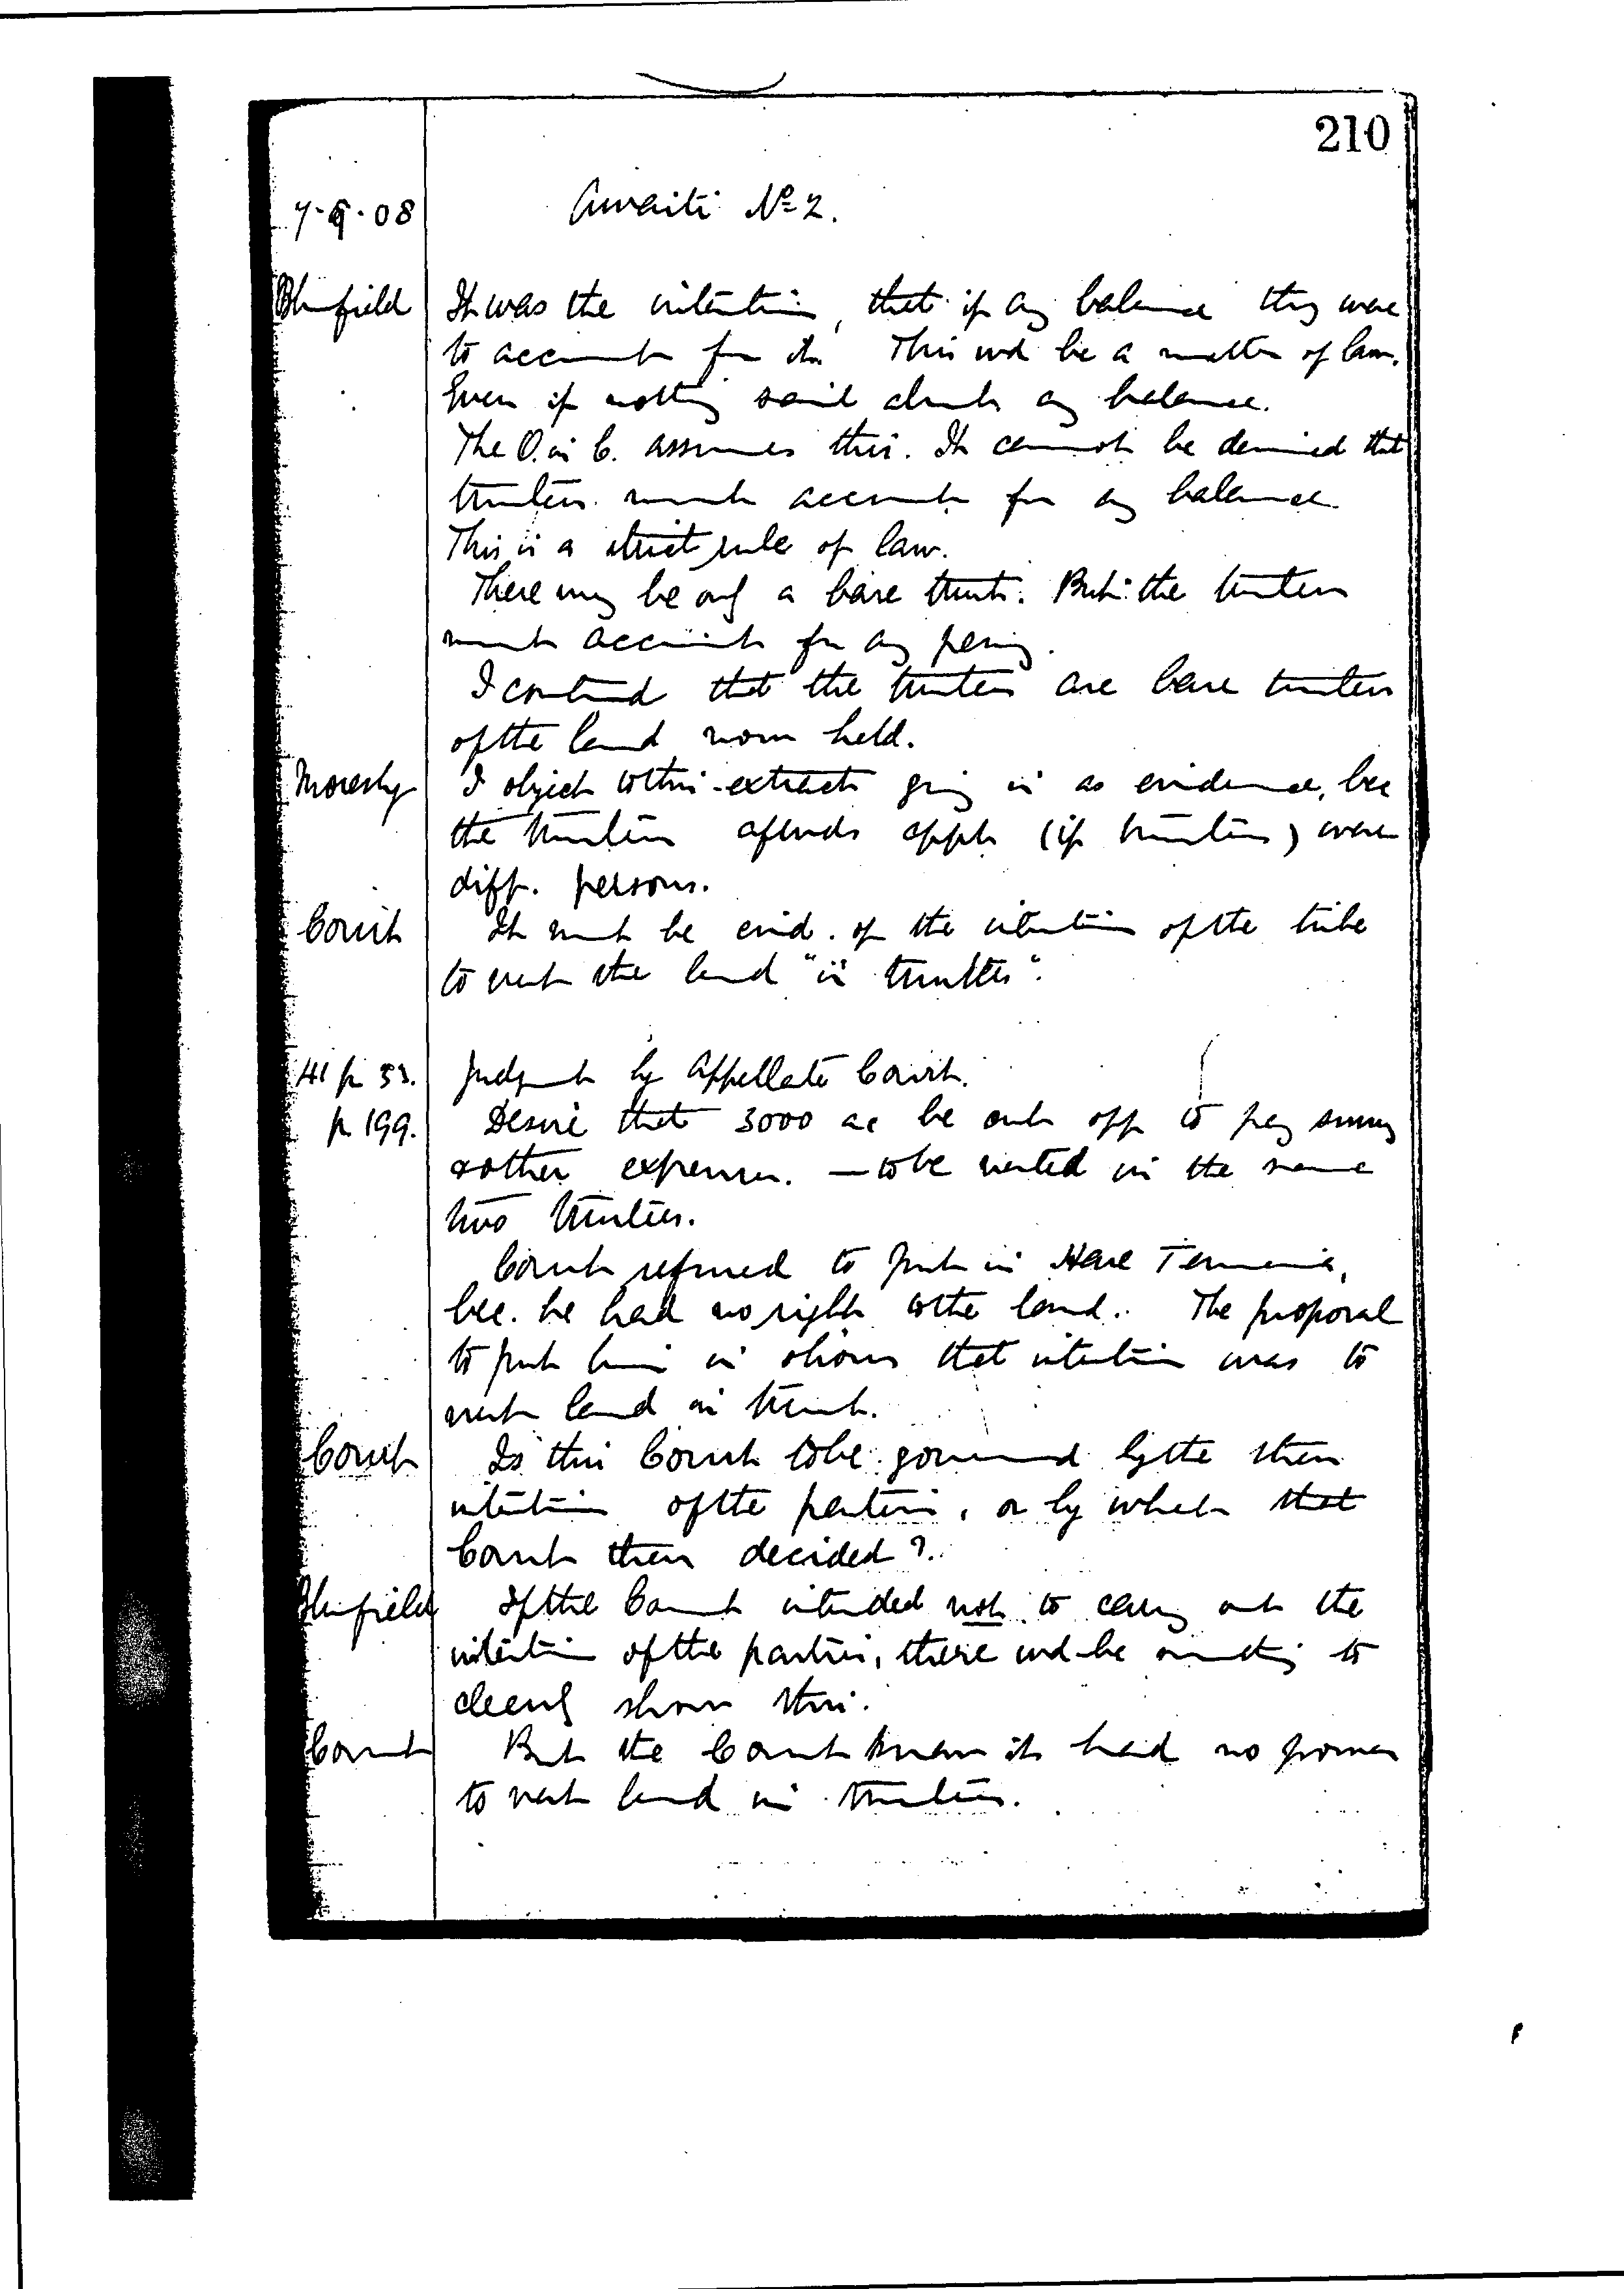 210
7-9-08 Awaiti No 2.
Blomfield It was the intention, that if any balance they were
to account for it. This wd be a matter of law.
Even if nothing said about any balance.
The O. in C. assumes this. It cannot be denied that
trustees must account for any balance.
This is a strict rule of law.
There may be only a bare trust. But the trustees
must account for any penny.
I contend that the trustees are bare trustees
of the land now held.
Moresby I object to this extract going in as evidence, bec
the trustees afwds appt (if trustees) were
diff. persons.
Court It must be evid. of the intention of the tribe
to vest the land "in trustees".
41 p 53. Judgmt by Appellate Court.
p 199. Desire that 3000 ac be cut off to pay survey
& other expenses. — to be vested in the same
two trustees.
Court refused to put in Hare
bec. he had no right to the land. The proposal
to put him in shows that intention was to
vest land in trust.
Court Is this Court to be governed by the then
intention of the parties, or by what that
Court then decided?
Blomfield If the Court intended not to carry out the
intention of the parties, there wd be something to
clearly show this.
Court But the Court knew it had no power
to vest land in trustees.